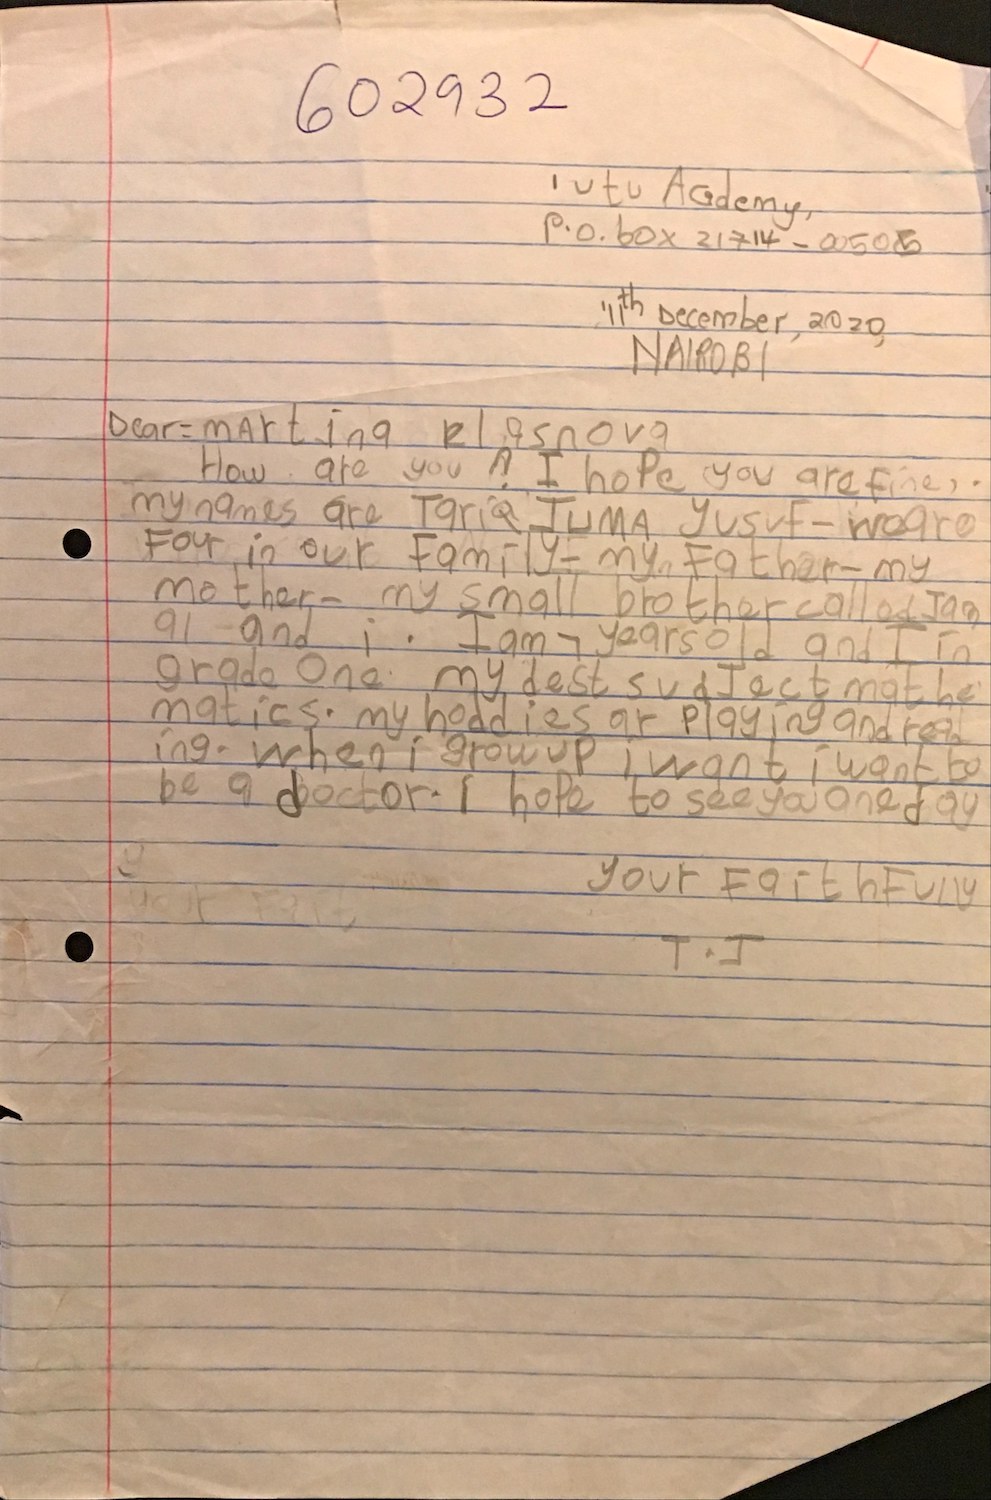 602932
Tutu Academy,
P.O. box 21714 - 00505
11th December, 2020,
NAIROBI
Dear = mArtina klasnova
How are you? I hope you are fine,.
my names are Tariq JUMA Yusuf - we are
Four in our Family = my Father - my
mother - my small brother called Jam
al - and i. I am 7 years old and I in
grade One. my dest sudject mathe
matics. my hoddies ar playing and read
ing. when i grow up i want i want to
be a doctor. I hope to see you one day
your Faithfully
T.J